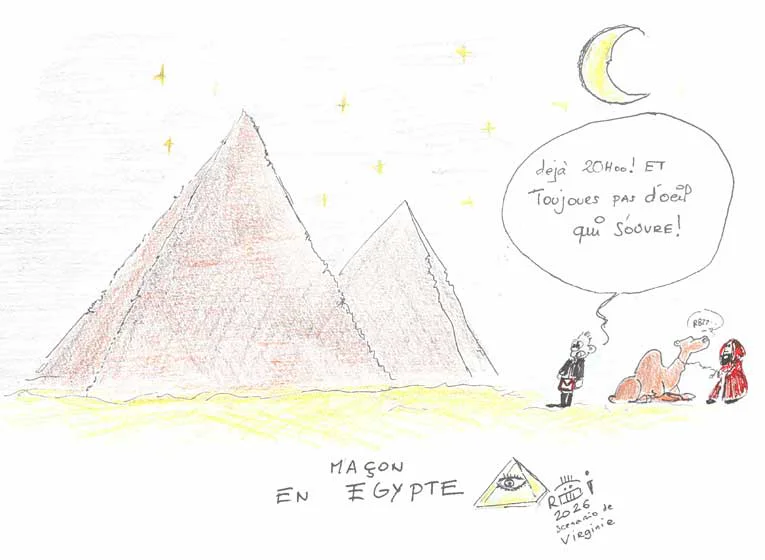 déjà 20Hoo! ET
Toujours pas d'oeil
qui s'ouvre!
MAÇON
EN EGYPTE
2026
scenario de
Virginie